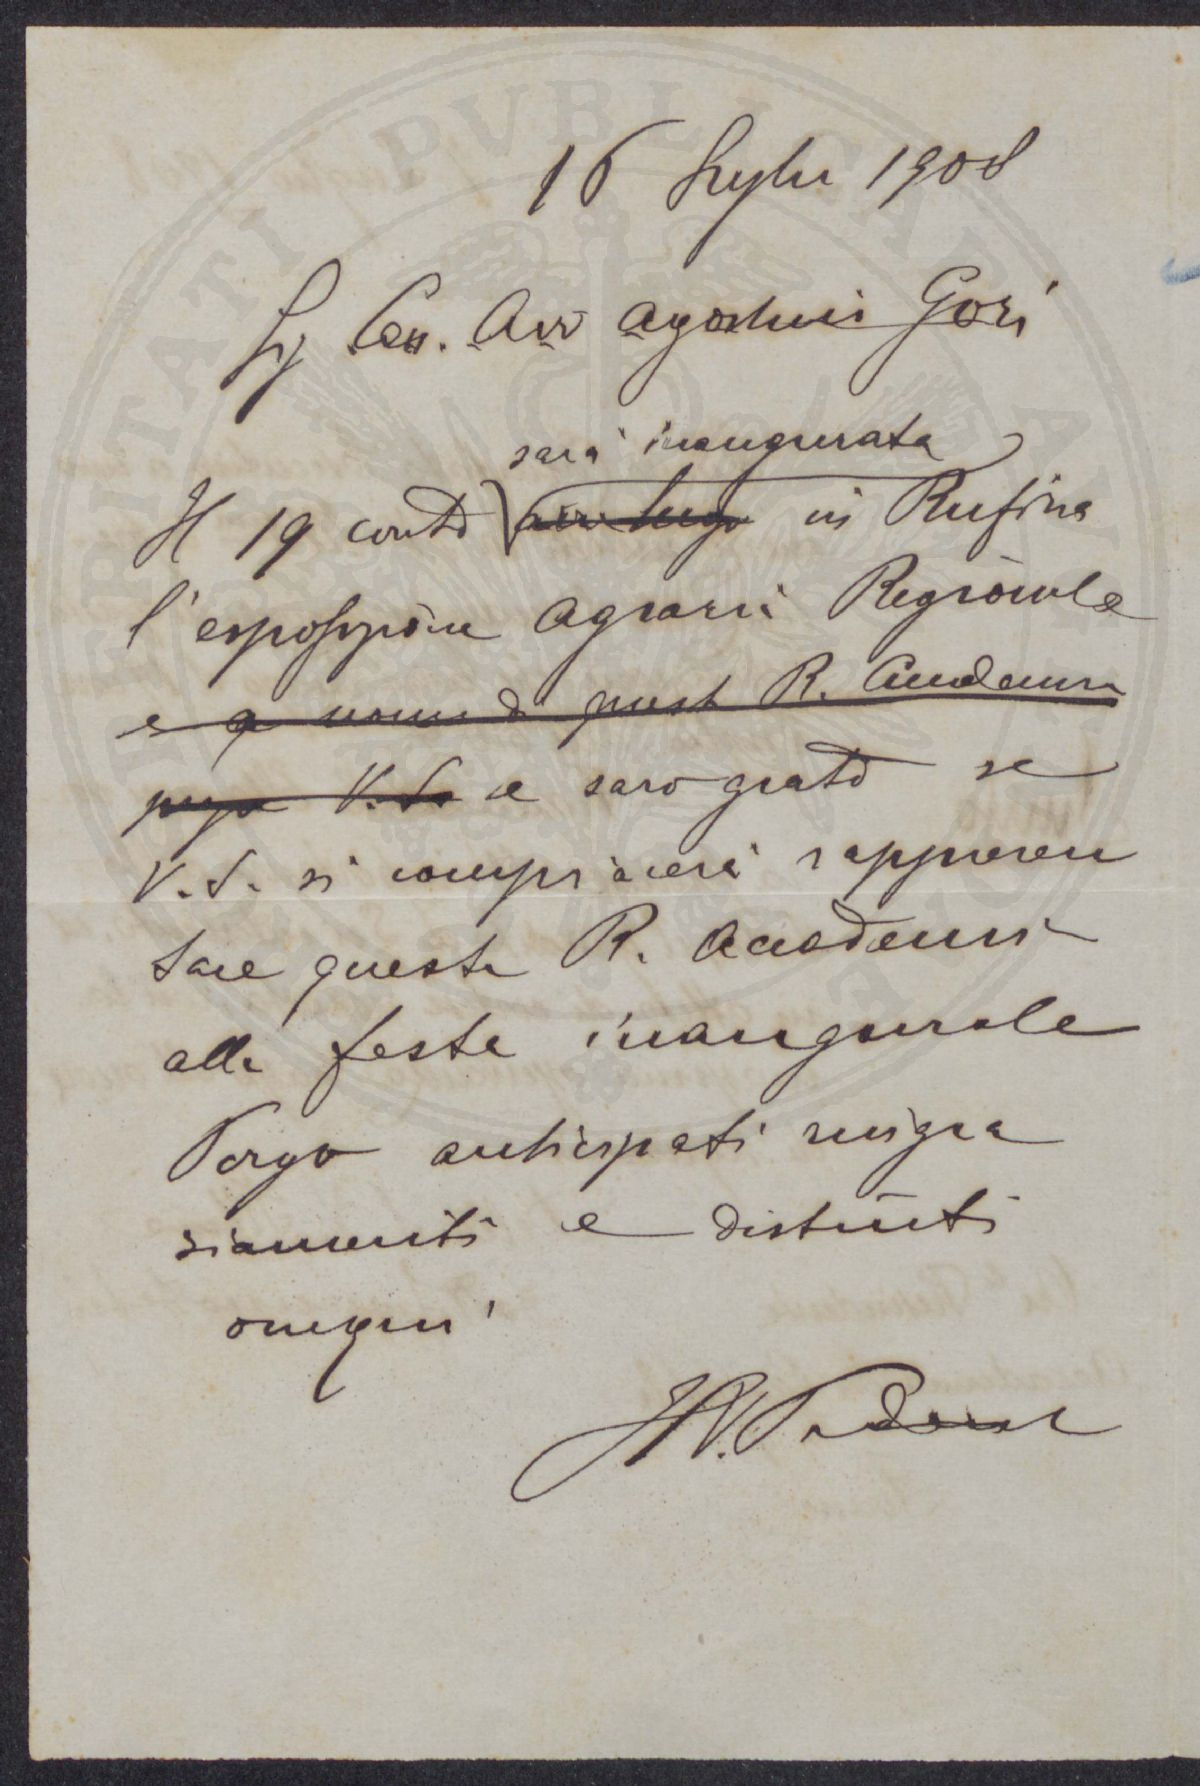 16 Luglio 1908
Sg Cav. Avv Agostino Gori
sarà inaugurata
Il 19 corrte avrà luogo in Rufina
l'esposizione Agraria Regionale
e a nome di questa R. Accademia
prego V.S. e sarò grato se
V.S. si compiacerà rappresen
tare questa R. Accademia
alla festa inaugurale
Porgo anticipati ringra
ziamenti e distinti
ossequi
Il V. Presidente
PVBLICAE